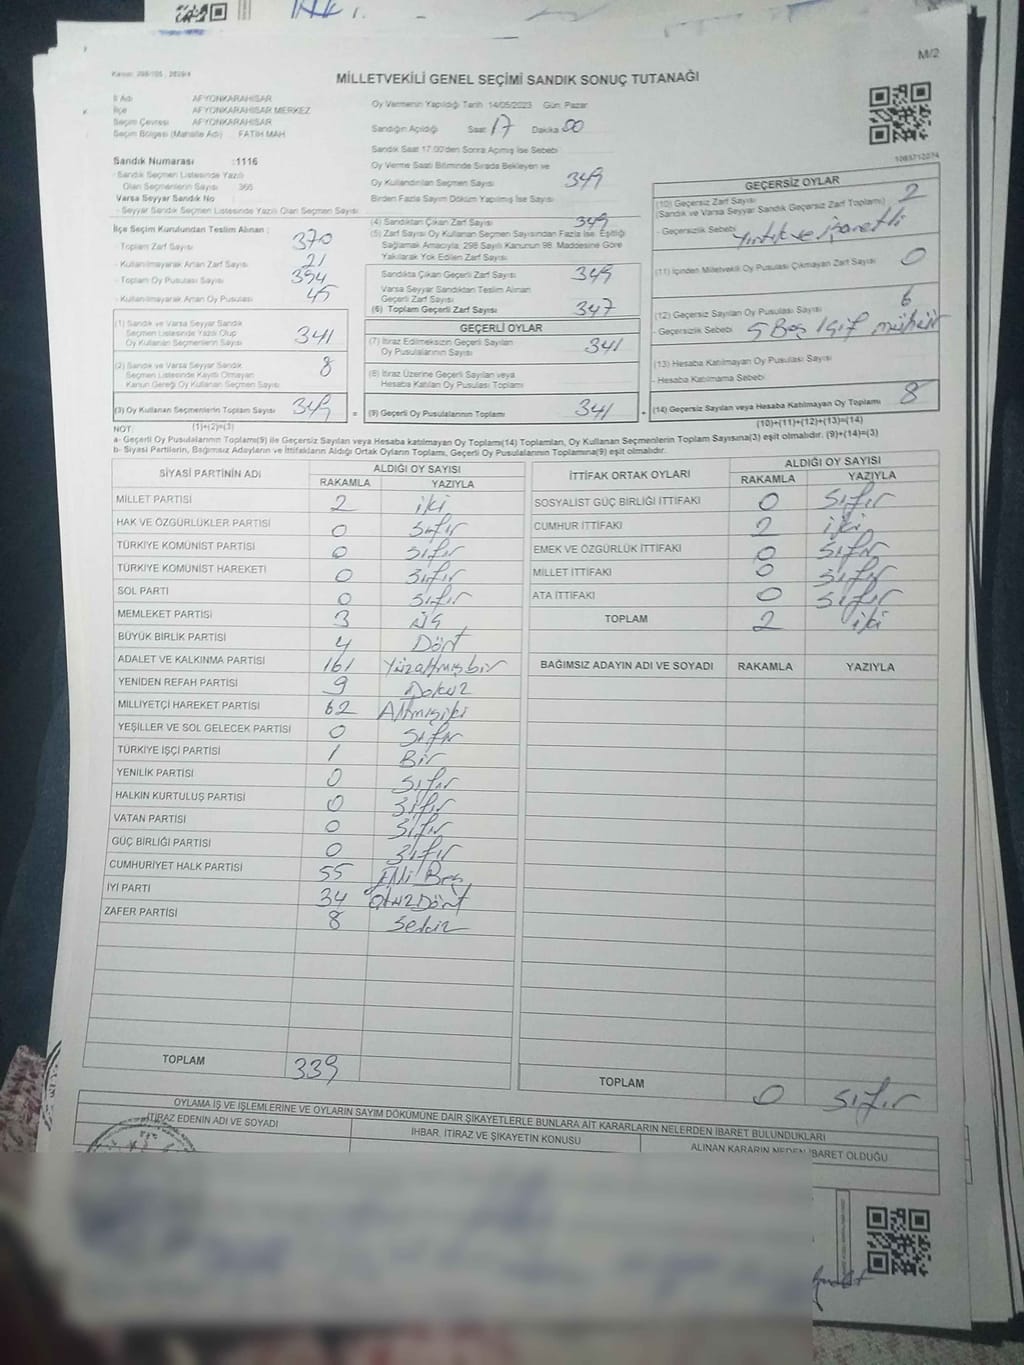 M/2
Kanun: 298/105 , 2839/4
MİLLETVEKİLİ GENEL SEÇİMİ SANDIK SONUÇ TUTANAĞI
İl Adı AFYONKARAHİSAR
İlçe AFYONKARAHİSAR MERKEZ
Seçim Çevresi AFYONKARAHİSAR
Seçim Bölgesi (Mahalle Adı) FATİH MAH
Sandık Numarası :1116
- Sandık Seçmen Listesinde Yazılı
Olan Seçmenlerin Sayısı 365
Varsa Seyyar Sandık No
- Seyyar Sandık Seçmen Listesinde Yazılı Olan Seçmen Sayısı
Oy Vermenin Yapıldığı Tarih 14/05/2023 Gün: Pazar
Sandığın Açıldığı Saat 17 Dakika 00
Sandık Saat 17.00'den Sonra Açılmış İse Sebebi
Oy Verme Saati Bitiminde Sırada Bekleyen ve
Oy Kullandırılan Seçmen Sayısı 349
Birden Fazla Sayım Döküm Yapılmış İse Sayısı
İlçe Seçim Kurulundan Teslim Alınan :
- Toplam Zarf Sayısı 370
- Kullanılmayarak Artan Zarf Sayısı 21
- Toplam Oy Pusulası Sayısı 394
- Kullanılmayarak Artan Oy Pusulası 45
(1) Sandık ve Varsa Seyyar Sandık
Seçmen Listesinde Yazılı Olup
Oy Kullanan Seçmenlerin Sayısı 341
(2) Sandık ve Varsa Seyyar Sandık
Seçmen Listesinde Kayıtlı Olmayan
Kanun Gereği Oy Kullanan Seçmen Sayısı 8
(3) Oy Kullanan Seçmenlerin Toplam Sayısı 349 =
(1)+(2)=(3)
(4) Sandıktan Çıkan Zarf Sayısı 349
(5) Zarf Sayısı Oy Kullanan Seçmen Sayısından Fazla İse, Eşitliği
Sağlamak Amacıyla; 298 Sayılı Kanunun 98. Maddesine Göre
Yakılarak Yok Edilen Zarf Sayısı
Sandıkta Çıkan Geçerli Zarf Sayısı 349
Varsa Seyyar Sandıktan Teslim Alınan
Geçerli Zarf Sayısı
(6) Toplam Geçerli Zarf Sayısı 347
GEÇERLİ OYLAR
(7) İtiraz Edilmeksizin Geçerli Sayılan
Oy Pusulalarının Sayısı 341
(8) İtiraz Üzerine Geçerli Sayılan veya
Hesaba Katılan Oy Pusulası Toplamı
(9) Geçerli Oy Pusulalarının Toplamı 341 +
1083712074
GEÇERSİZ OYLAR
(10) Geçersiz Zarf Sayısı 2
(Sandık ve Varsa Seyyar Sandık Geçersiz Zarf Toplamı)
- Geçersizlik Sebebi Yırtık ve işaretli
(11) İçinden Milletvekili Oy Pusulası Çıkmayan Zarf Sayısı 0
(12) Geçersiz Sayılan Oy Pusulası Sayısı 6
- Geçersizlik Sebebi 5 Beş Çift mühür
(13) Hesaba Katılmayan Oy Pusulası Sayısı
- Hesaba Katılmama Sebebi
(14) Geçersiz Sayılan veya Hesaba Katılmayan Oy Toplamı 8
(10)+(11)+(12)+(13)=(14)
NOT:
a- Geçerli Oy Pusulalarının Toplamı(9) ile Geçersiz Sayılan veya Hesaba katılmayan Oy Toplamı(14) Toplamları, Oy Kullanan Seçmenlerin Toplam Sayısına(3) eşit olmalıdır. (9)+(14)=(3)
b- Siyasi Partilerin, Bağımsız Adayların ve İttifakların Aldığı Oy Toplamı, Geçerli Oy Pusulalarının Toplamına(9) eşit olmalıdır.
SİYASİ PARTİNİN ADI ALDIĞI OY SAYISI
RAKAMLA YAZIYLA
MİLLET PARTİSİ 2 iki
HAK VE ÖZGÜRLÜKLER PARTİSİ 0 Sıfır
TÜRKİYE KOMÜNİST PARTİSİ 0 Sıfır
TÜRKİYE KOMÜNİST HAREKETİ 0 Sıfır
SOL PARTİ 0 Sıfır
MEMLEKET PARTİSİ 3 üç
BÜYÜK BİRLİK PARTİSİ 4 Dört
ADALET VE KALKINMA PARTİSİ 161 Yüzaltmışbir
YENİDEN REFAH PARTİSİ 9 Dokuz
MİLLİYETÇİ HAREKET PARTİSİ 62 Altmışiki
YEŞİLLER VE SOL GELECEK PARTİSİ 0 Sıfır
TÜRKİYE İŞÇİ PARTİSİ 1 Bir
YENİLİK PARTİSİ 0 Sıfır
HALKIN KURTULUŞ PARTİSİ 0 Sıfır
VATAN PARTİSİ 0 Sıfır
GÜÇ BİRLİĞİ PARTİSİ 0 Sıfır
CUMHURİYET HALK PARTİSİ 55 Elli Beş
İYİ PARTİ 34 OtuzDört
ZAFER PARTİSİ 8 Sekiz
TOPLAM 339
İTTİFAK ORTAK OYLARI ALDIĞI OY SAYISI
RAKAMLA YAZIYLA
SOSYALİST GÜÇ BİRLİĞİ İTTİFAKI 0 Sıfır
CUMHUR İTTİFAKI 2 iki
EMEK VE ÖZGÜRLÜK İTTİFAKI 0 Sıfır
MİLLET İTTİFAKI 0 Sıfır
ATA İTTİFAKI 0 Sıfır
TOPLAM 2 iki
BAĞIMSIZ ADAYIN ADI VE SOYADI RAKAMLA YAZIYLA
TOPLAM 0 Sıfır
OYLAMA İŞ VE İŞLEMLERİNE VE OYLARIN SAYIM DÖKÜMÜNE DAİR ŞİKAYETLERLE BUNLARA AİT KARARLARIN NELERDEN İBARET BULUNDUKLARI
İTİRAZ EDENİN ADI VE SOYADI İHBAR, İTİRAZ VE ŞİKAYETİN KONUSU ALINAN KARARIN NEDEN İBARET OLDUĞU